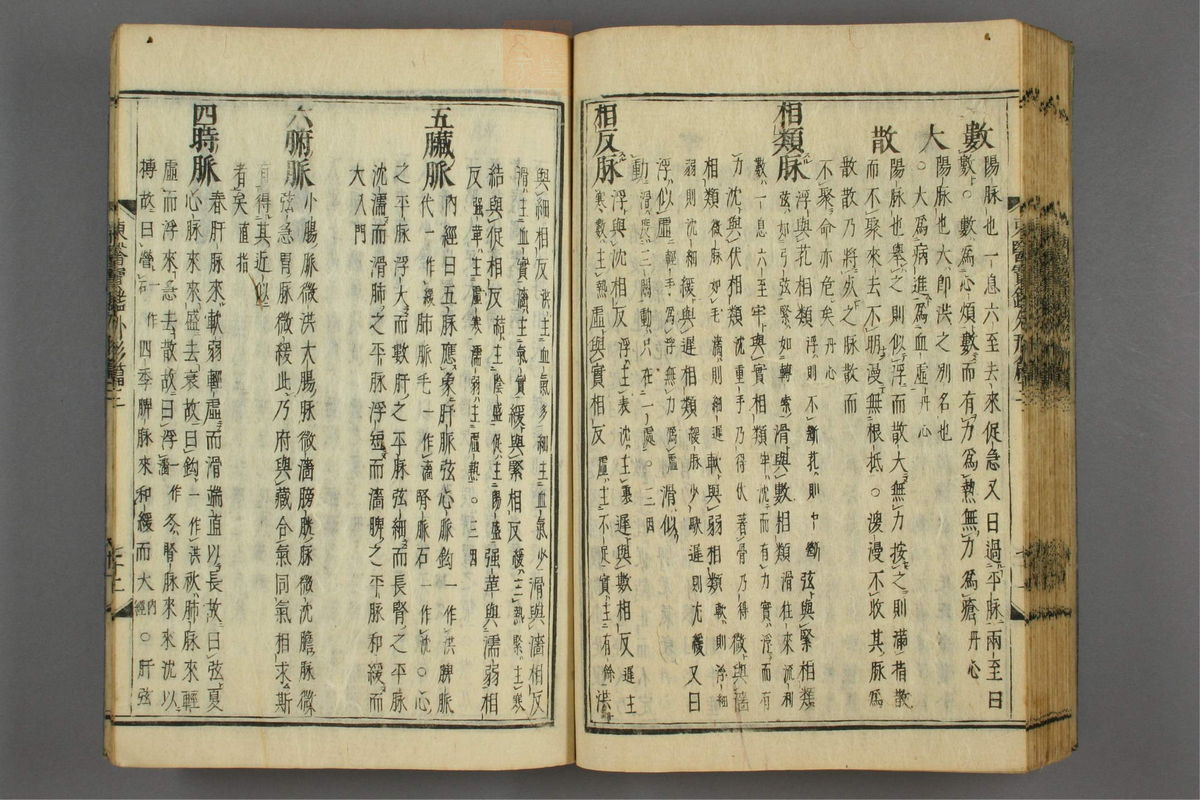 數 陽脉也一息六至去來促急又曰過平脉兩至曰
數○數爲心煩數而有力爲熱無力爲瘡丹心
大 陽脉也大卽洪之別名也
○大爲病進爲血虛丹心
散 陽脉也擧之則似浮而散大無力按之則滿指散
而不聚來去不明漫無根柢○渙漫不收其脉爲
散散乃將死之脉散而
不聚命亦危矣丹心
相類脉 浮與芤相類浮則不斷芤則中斷弦與緊相類
弦如弓弦緊如轉索滑與數相類滑往來流利
數一息六至牢與實相類牢沈而有力實浮而有
力沈與伏相類沈重手乃得伏著骨乃得微與濇
相類微脉如毛濇則細遲軟與弱相類軟則浮細
弱則沈細緩與遲相類緩脉少駛遲則尤緩又曰
浮似虛浮無力爲虛滑似
動滑三關動只在一處○三因
相反脉 浮與沈相反浮主表沈主裏遲與數相反遲主
寒數主熱虛與實相反虛主不足實主有餘洪
與細相反洪主血氣多細主血氣少滑與濇相反
滑主血實濇主氣實緩與緊相反緩主熱緊主寒
結與促相反結主陰盛促主陽盛强革與濡弱相
反强革主虛寒濡弱主虛熱○三因
五臟脉 內經曰五脉應象肝脉弦心脉鉤一作洪脾脉
代一作緩肺脉毛一作濇腎脉石一作沈○心
之平脉浮大而數肝之平脉弦細而長腎之平脉
沈濡而滑肺之平脉浮短而濇脾之平脉和緩而
大入門
六腑脉 小腸脉微洪大腸脉微濇膀胱脉微沈膽脉微
弦急胃脉微緩此乃府與藏合氣同氣相求斯
有得其近似
者矣直指
四時脉 春肝脉來耎弱輕虛而滑端直以長故曰弦夏
心脉來來盛去衰故曰鉤一作洪秋肺脉來輕
虛而浮來急去散故曰浮一作濇冬腎脉來來沈以
搏故曰營一作石四季脾脉來和緩而大內經○肝弦
東醫寶鑑外形篇